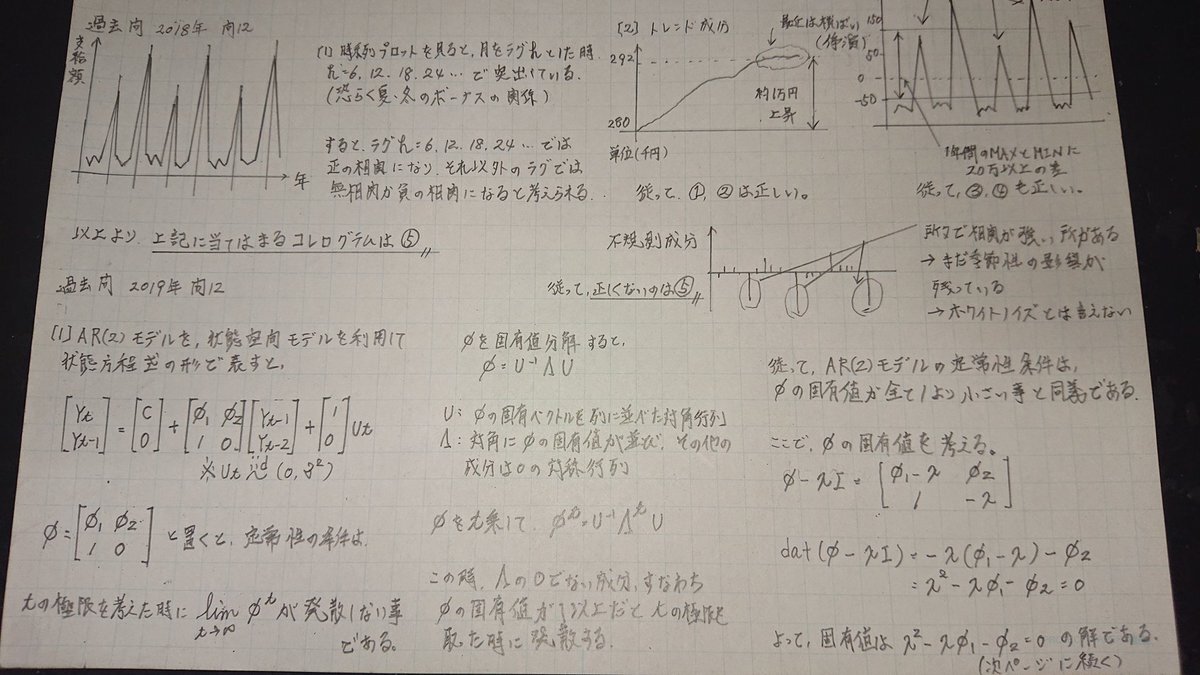 過去問 2018年 問12
支給額
年
(1) 時系列プロットを見ると、月をラグhとした時
h=6, 12, 18, 24 … で突出している。
(恐らく夏・冬のボーナスの関係)
すると、ラグh=6, 12, 18, 24 … では
正の相関になり、それ以外のラグでは
無相関か負の相関になると考えられる。
以上より、上記に当てはまるコレログラムは⑤〃
[2] トレンド成分
最近は横ばい
292
280
約1万円
上昇
単位(千円)
従って、①, ②は正しい。
150
50
0
-50
1年間のMAXとMINに
20万以上の差
従って、③, ④も正しい。
不規則成分
従って、正しくないのは⑤〃
所々で相関が強い所がある
→ まだ季節性の影響が
残っている
→ ホワイトノイズとは言えない
過去問 2019年 問12
[1] AR(2)モデルを、状態空間モデルを利用して
状態方程式の形で表すと、
[Yt Yt-1] = [C 0] + [φ1 φ2 1 0][Yt-1 Yt-2] + [1 0]Ut
※ Ut iid~ (0, σ²)
φ = [φ1 φ2 1 0] と置くと、定常性の条件は、
tの極限を考えた時に lim t→∞ φ^t が発散しない事
である。
φを固有値分解すると、
φ = U⁻¹ΛU
U: φの固有ベクトルを列に並べた対角行列
Λ: 対角にφの固有値が並び、その他の
成分は0の対称行列
φをt乗して、φ^t = U⁻¹Λ^tU
この時、Λの0でない成分、すなわち
φの固有値が1以上だとtの極限を
取た時に発散する。
従って、AR(2)モデルの定常性条件は、
φの固有値が全て1より小さい事と同義である。
ここで、φの固有値を考える。
φ-λI = [φ1-λ φ2 1 -λ]
dat(φ-λI) = -λ(φ1-λ) - φ2
= λ² - λφ1 - φ2 = 0
よって、固有値は λ² - λφ1 - φ2 = 0 の解である。
(次ページに続く)